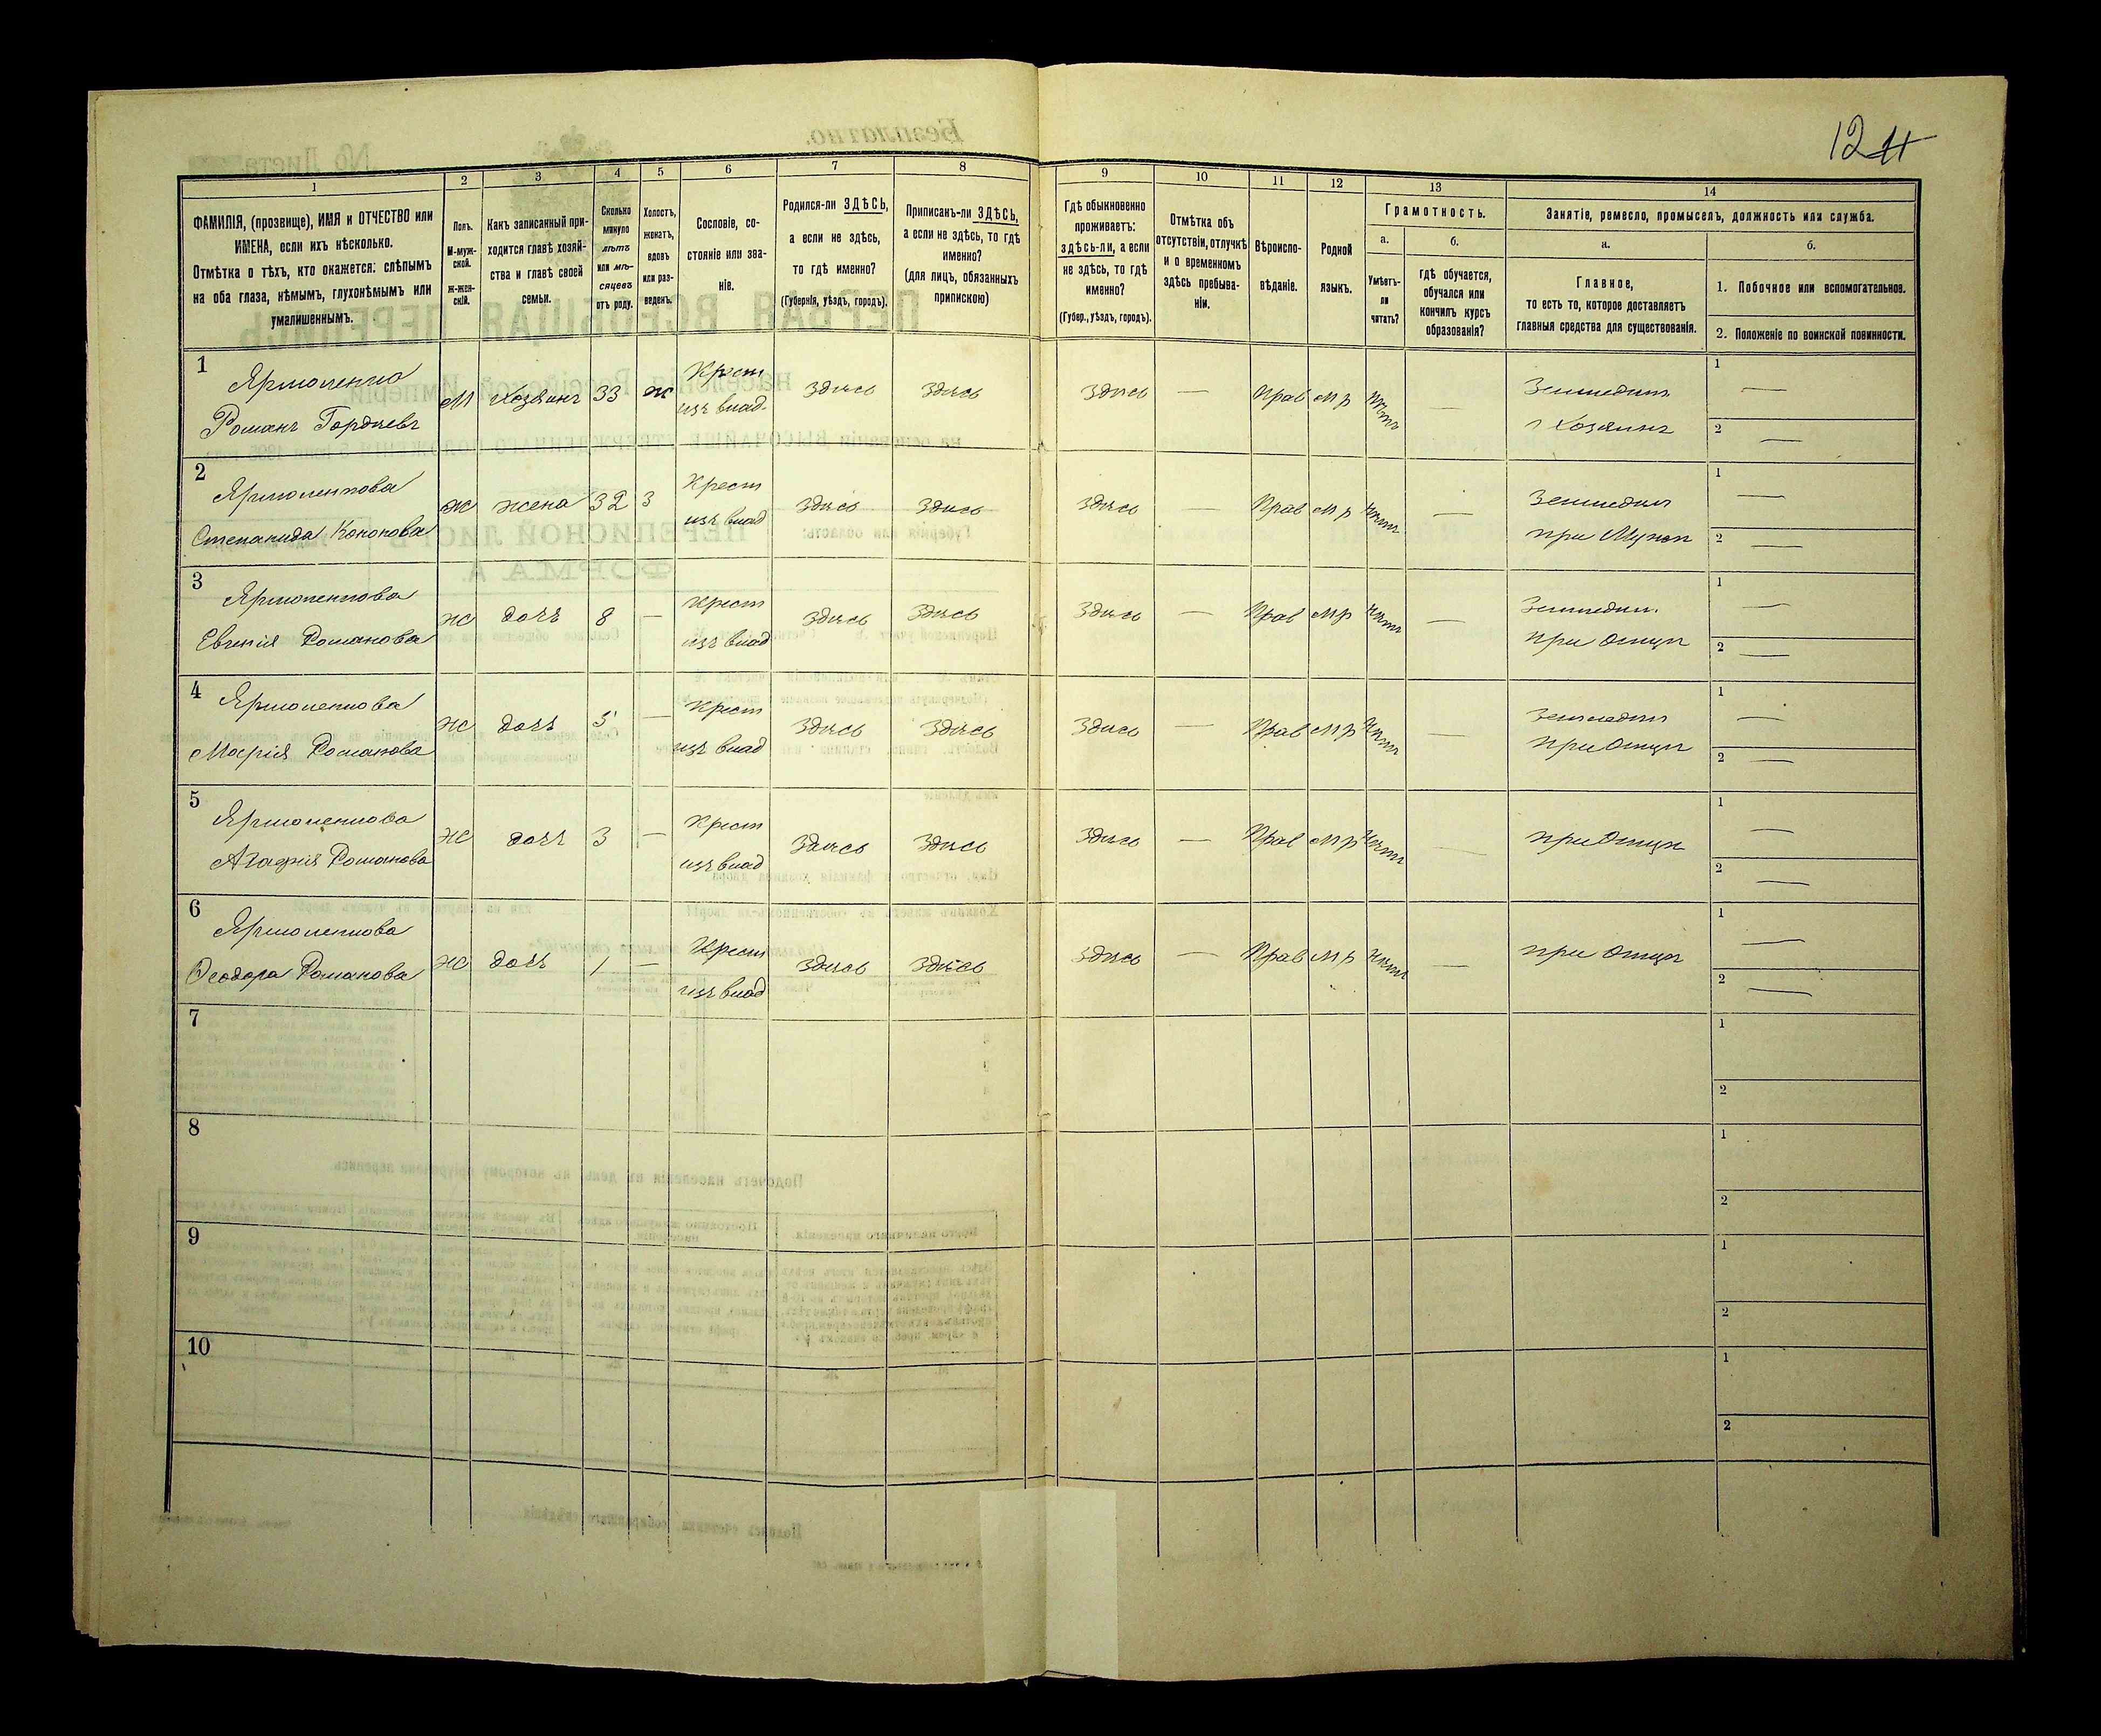 12 11
1 2 3 4 5 6 7 8 9 10 11 12 13 14
ФАМИЛІЯ, (прозвище), ИМЯ и ОТЧЕСТВО или
ИМЕНА, если ихъ нѣсколько.
Отмѣтка о тѣхъ, кто окажется: слѣпымъ
на оба глаза, нѣмымъ, глухонѣмымъ или
умалишеннымъ.
Полъ.
М-муж-
ской.
Ж-жен-
скій.
Какъ записанный при-
ходится главѣ хозяй-
ства и главѣ своей
семьи.
Сколько
минуло
лѣтъ
или мѣ-
сяцевъ
отъ роду.
Холостъ,
женатъ,
вдовъ
или раз-
веденъ.
Сословіе, со-
стояніе или зва-
ніе.
Родился-ли ЗДѢСЬ,
а если не здѣсь,
то гдѣ именно?
(Губернія, уѣздъ, городъ).
Приписанъ-ли ЗДѢСЬ,
а если не здѣсь, то гдѣ
именно?
(для лицъ, обязанныхъ
припискою)
Гдѣ обыкновенно
проживаетъ:
здѣсь-ли, а если
не здѣсь, то гдѣ
именно?
(Губер., уѣздъ, городъ).
Отмѣтка объ
отсутствіи, отлучкѣ
и о временномъ
здѣсь пребыва-
ніи.
Вѣроиспо-
вѣданіе.
Родной
языкъ.
Грамотность.
а.
Умѣетъ-
ли
читать?
б.
гдѣ обучается,
обучался или
кончилъ курсъ
образованія?
Занятіе, ремесло, промыселъ, должность или служба.
а.
Главное,
то есть то, которое доставляетъ
главныя средства для существованія.
б.
1. Побочное или вспомогательное.
2. Положеніе по воинской повинности.
1
Ярмоленко
Романъ Гордѣевъ
М Хозяинъ 33 ж Крест изъ влад. здѣсь здѣсь здѣсь — Прав мр нѣтъ — Земледѣл. Хозяинъ 1 — 2 —
2
Ярмоленкова
Степанида Кононова
ж жена 32 з Крест изъ влад здѣсь здѣсь здѣсь — Прав мр нѣтъ — Земледѣл при Мужѣ 1 — 2 —
3
Ярмоленкова
Евгенія Романова
ж дочь 8 — Крест изъ влад здѣсь здѣсь здѣсь — Прав мр нѣтъ — Земледѣл. при Отцѣ 1 — 2 —
4
Ярмоленкова
Марія Романова
ж дочь 5 — Крест изъ влад здѣсь здѣсь здѣсь — Прав мр нѣтъ — Земледѣл при Отцѣ 1 — 2 —
5
Ярмоленкова
Агафія Романова
ж дочь 3 — Крест изъ влад здѣсь здѣсь здѣсь — Прав мр нѣтъ — при Отцѣ 1 — 2 —
6
Ярмоленкова
Ѳеодора Романова
ж дочь 1 — Крест изъ влад здѣсь здѣсь здѣсь — Прав мр нѣтъ — при Отцѣ 1 — 2 —
7 1 2
8 1 2
9 1 2
10 1 2